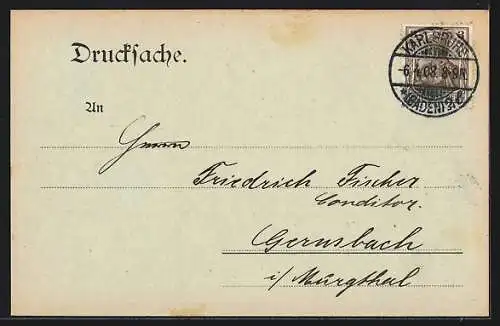 Drucksache.
KARLSRUHE
-6.4.08. 8-9N
*(BADEN) 2 c
3
An
Herrn
Friedrich Fischer
Conditor.
Gernsbach
i/ Murgthal